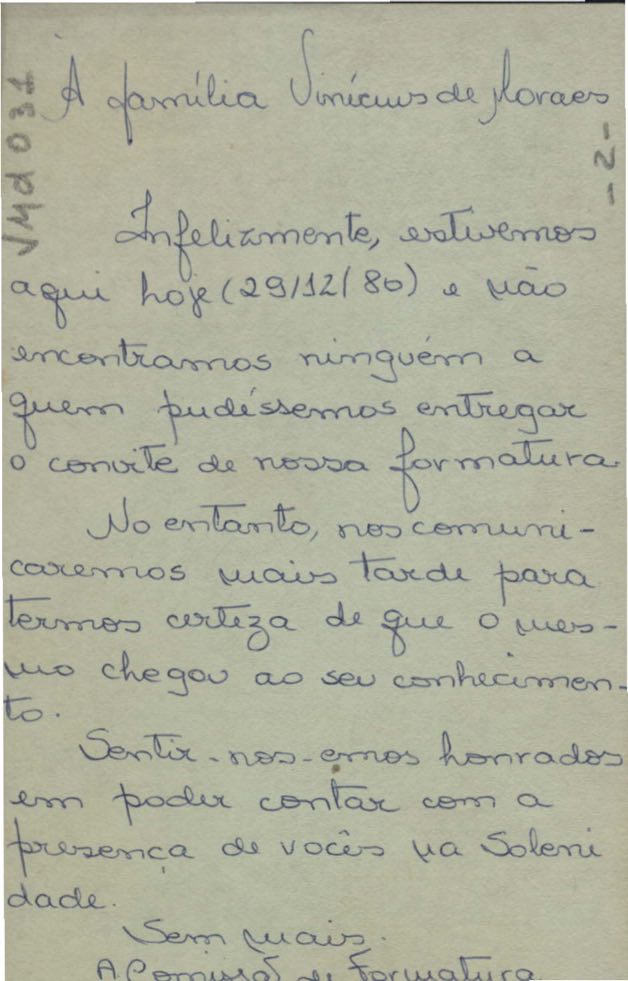 À família Vinícius de Moraes
VMd 031
-2-
Infelizmente, estivemos
aqui hoje (29/12/80) e não
encontramos ninguém a
quem pudéssemos entregar
o convite de nossa formatura.
No entanto, nos comuni-
caremos mais tarde para
termos certeza de que o mes-
mo chegou ao seu conhecimen-
to.
Sentir-nos-emos honrados
em poder contar com a
presença de vocês na Soleni
dade.
Sem mais.
A Comissão de Formatura